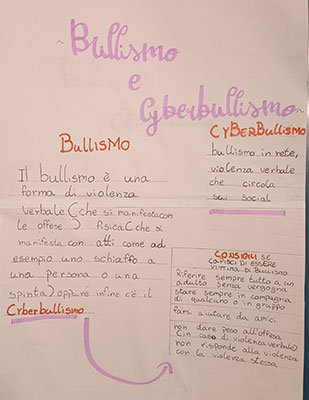 ~Bullismo
e
Cyberbullismo~
BullisMo
Il bullismo è una
forma di violenza
verbale (che si manifesta con
le offese...) fisica (che si
manifesta con atti come ad
esempio uno schiaffo a
una persona o una
spinta) oppure infine c'è il
Cyberbullismo
CYBerBullismo
bullismo in rete,
violenza verbale
che circola
sui social
CONSIGLI SE
CAPISCI DI ESSERE
VITTIMA DI BULLISMO
Riferire sempre tutto a un
adulto senza vergogna
stare sempre in compagnia
di qualcuno o in gruppo
farsi aiutare da amici
non dare peso all'offesa
(in caso di violenza verbale)
non risponde alla violenza
con la violenza stessa